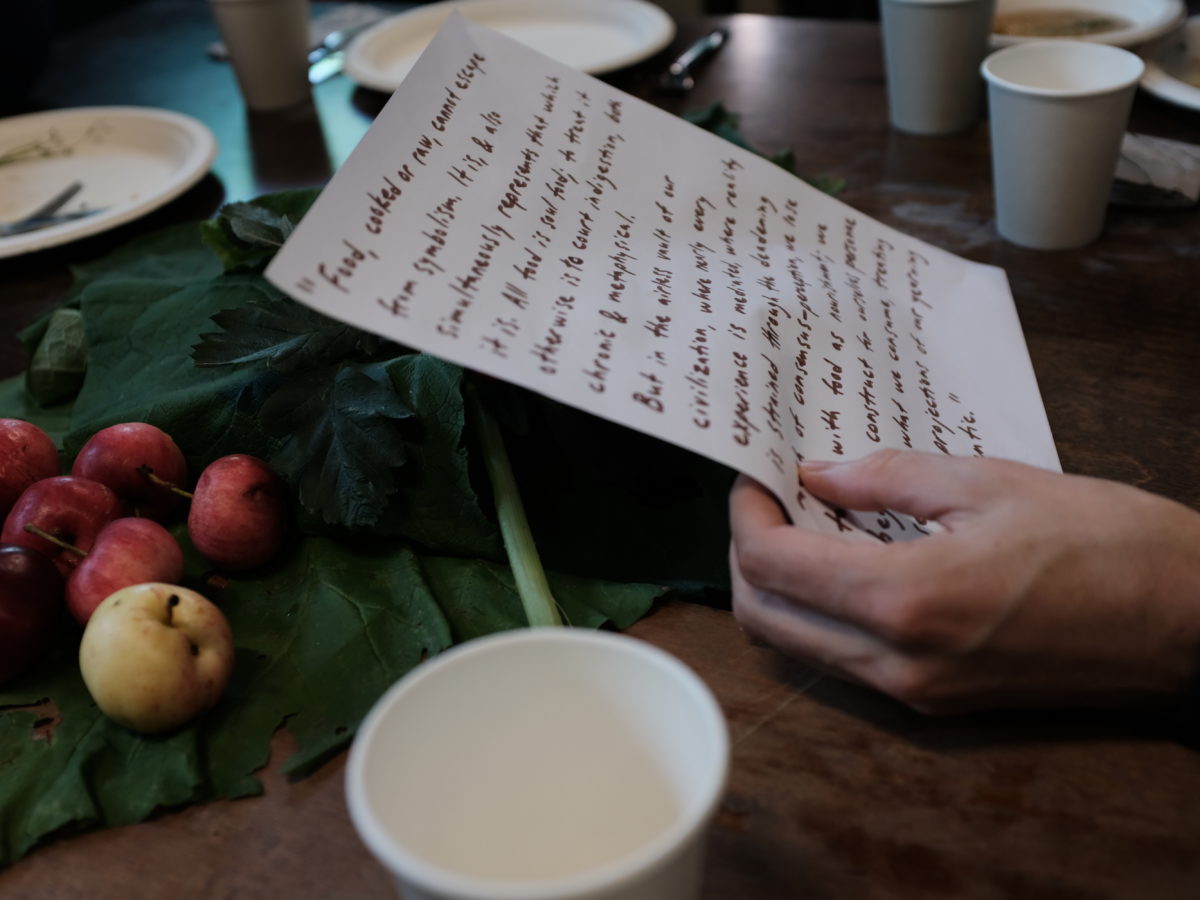 " Food, cooked or raw, cannot escape
from symbolism. It is, & also
simultaneously represents that which
it is. All food is soul food; to treat it
otherwise is to court indigestion, both
chronic & metaphysical.
But in the airless vault of our
civilization, where nearly every
experience is mediated, where reality
is strained through the deadening
of consensus-perception, we lose
with food as nourishment; we
construct
what we consume, treating
projections of our yearning